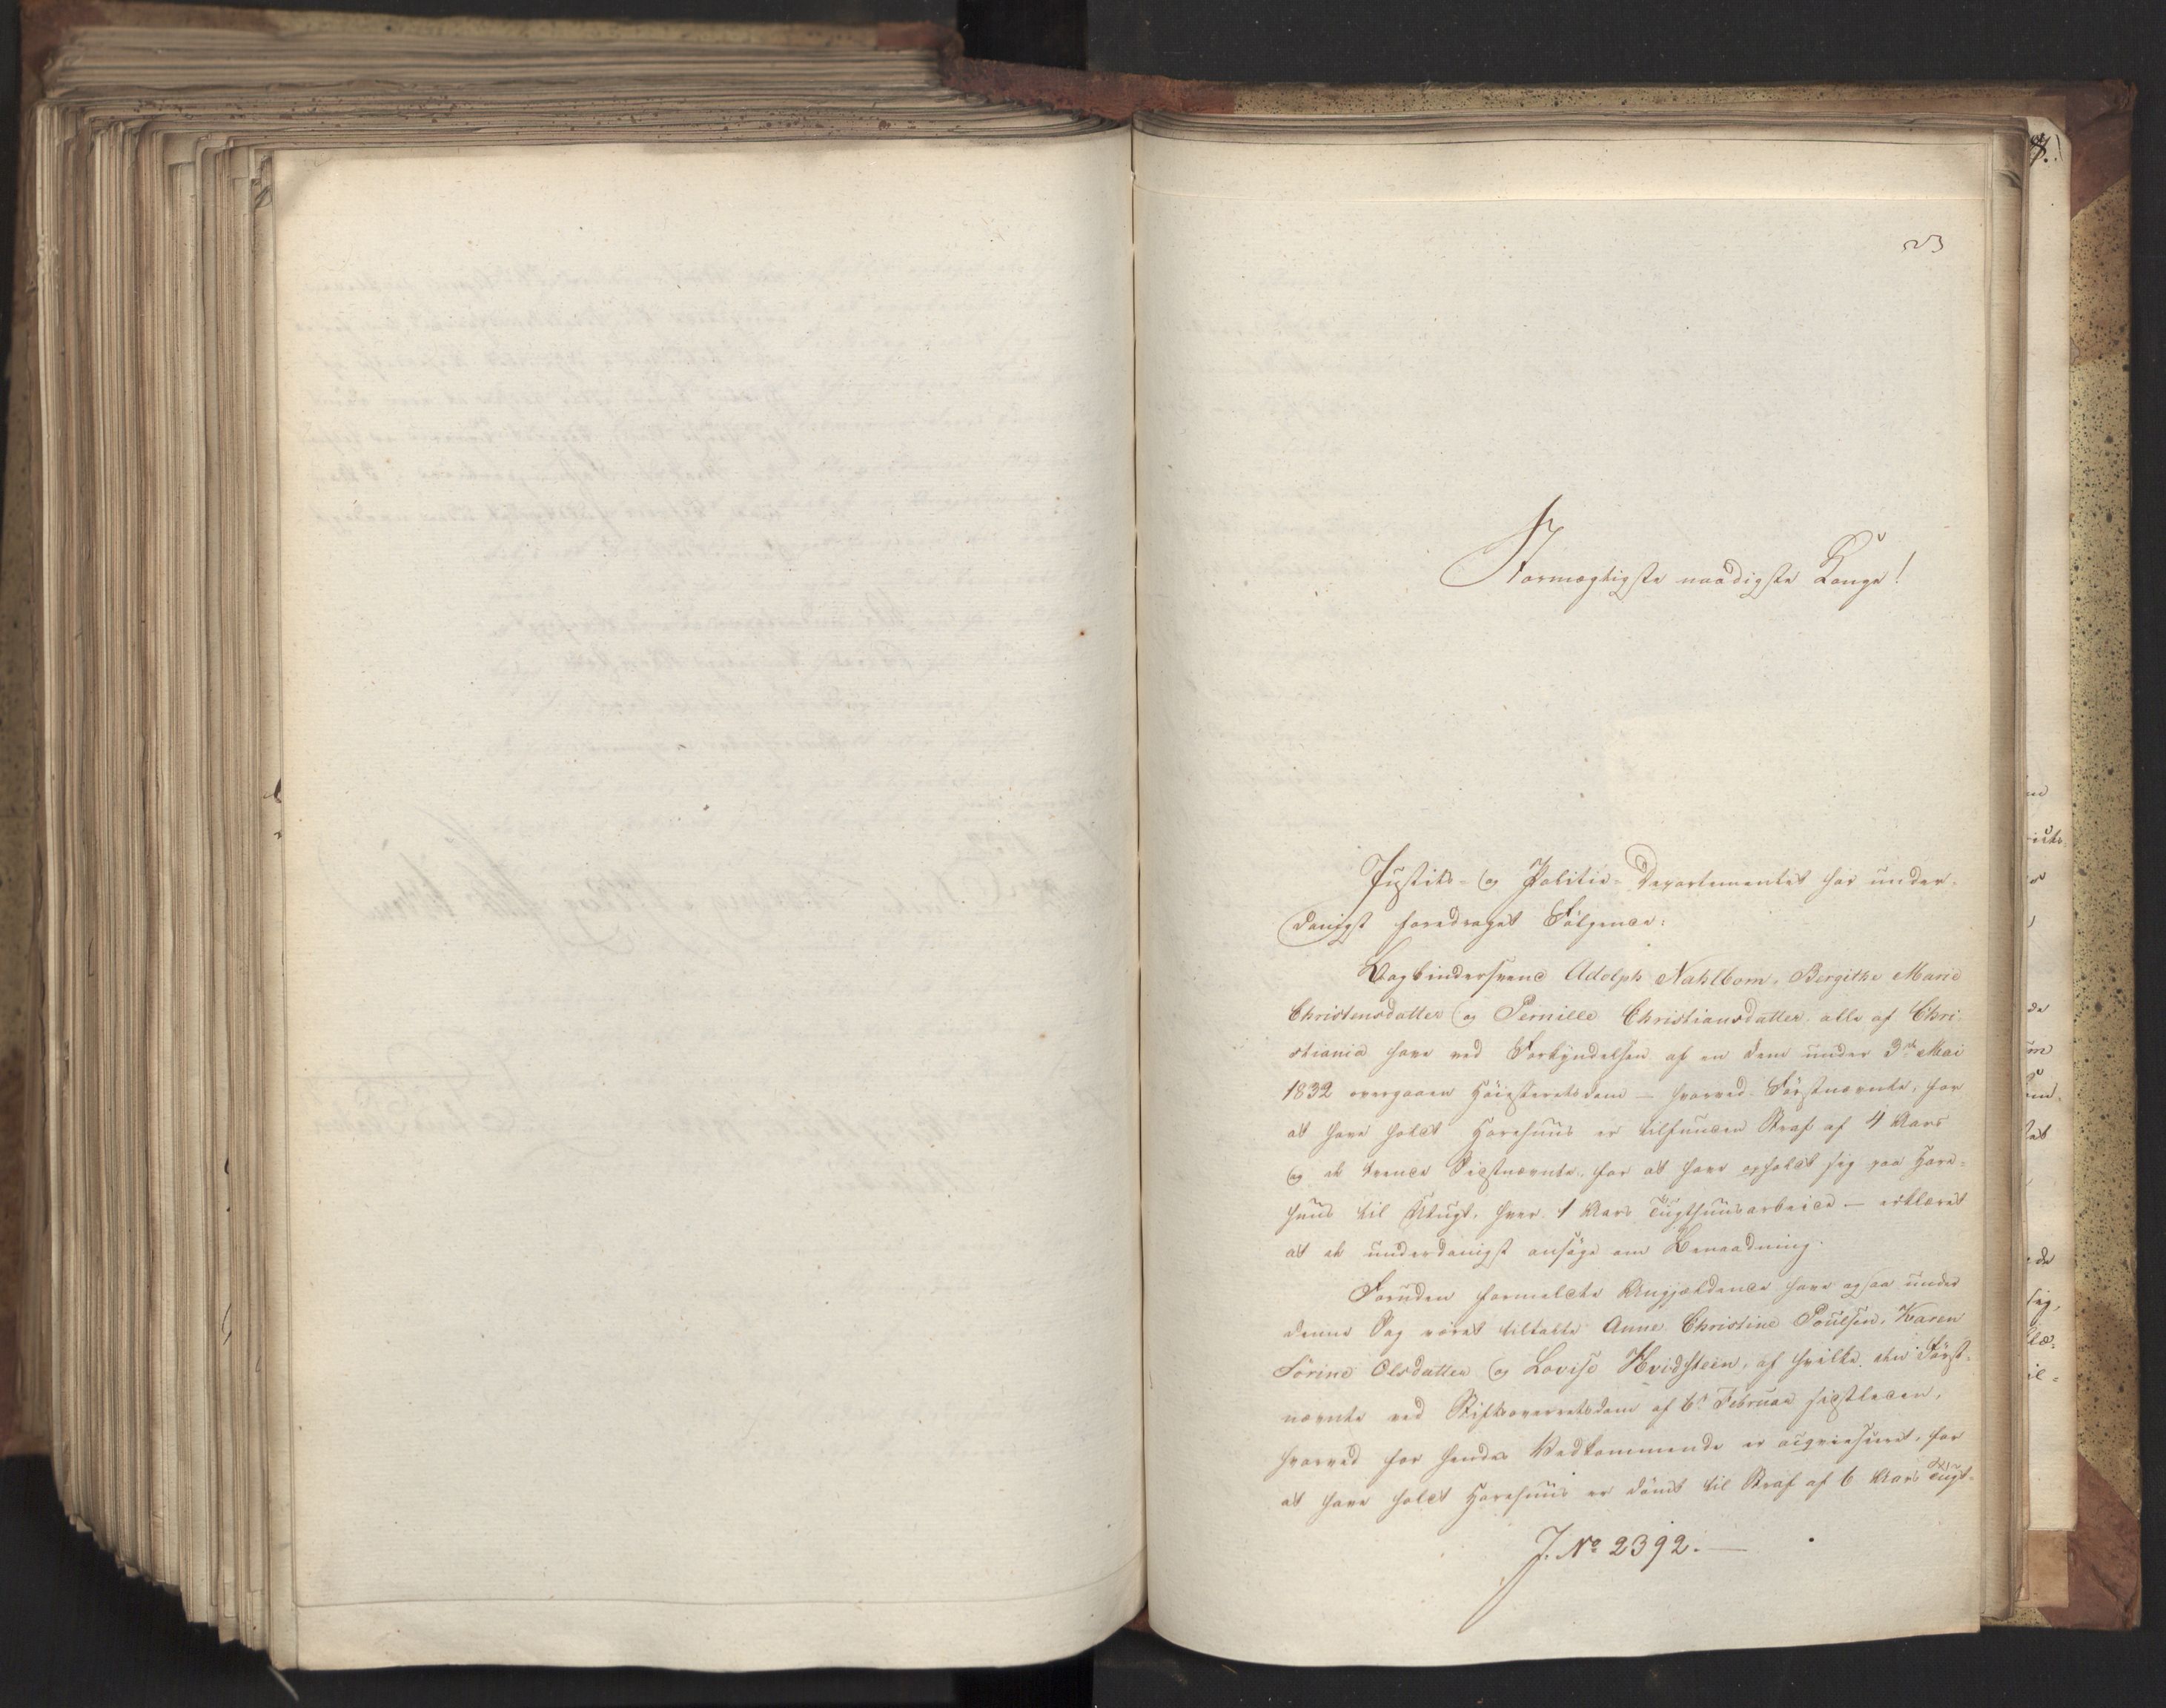 23
Stormægtigste naadigste Konge!
Justits- og Politie-Departementet har under-
danigst foredraget Følgende:
Bogbindersvend Adolph Nahlbom, Bergithe Marie
Christensdatter og Pernille Christiansdatter, alle af Chri-
stiania have ved Forkyndelsen af en dem under 3die Mai
1832 overgaaen Høiesteretsdom – hvorved Førstnævnte, for
at have holdt Horehuus er tilfunden Straf af 4 Aars
og de tvende Sidstnævnte, for at have opholdt sig paa Hore-
huus til Utugt, hver 1 Aars Tugthuusarbeide – erklæret
at de underdanigst ansøge om Benaadning.
Foruden formeldte Angjældende have ogsaa under
denne Sag været tiltalte Anne Christine Poulsen, Karen
Sørine Olsdatter og Lovise Hvidsteen, af hvilke den Først-
nævnte ved Stiftsoverretsdom af 6te Februar sidstleden,
hvorved for hendes Vedkommende er acqviesceret, for
at have holdt Horehuus er dømt til Straf af 6 Aars Tugt-
J. No 2392.